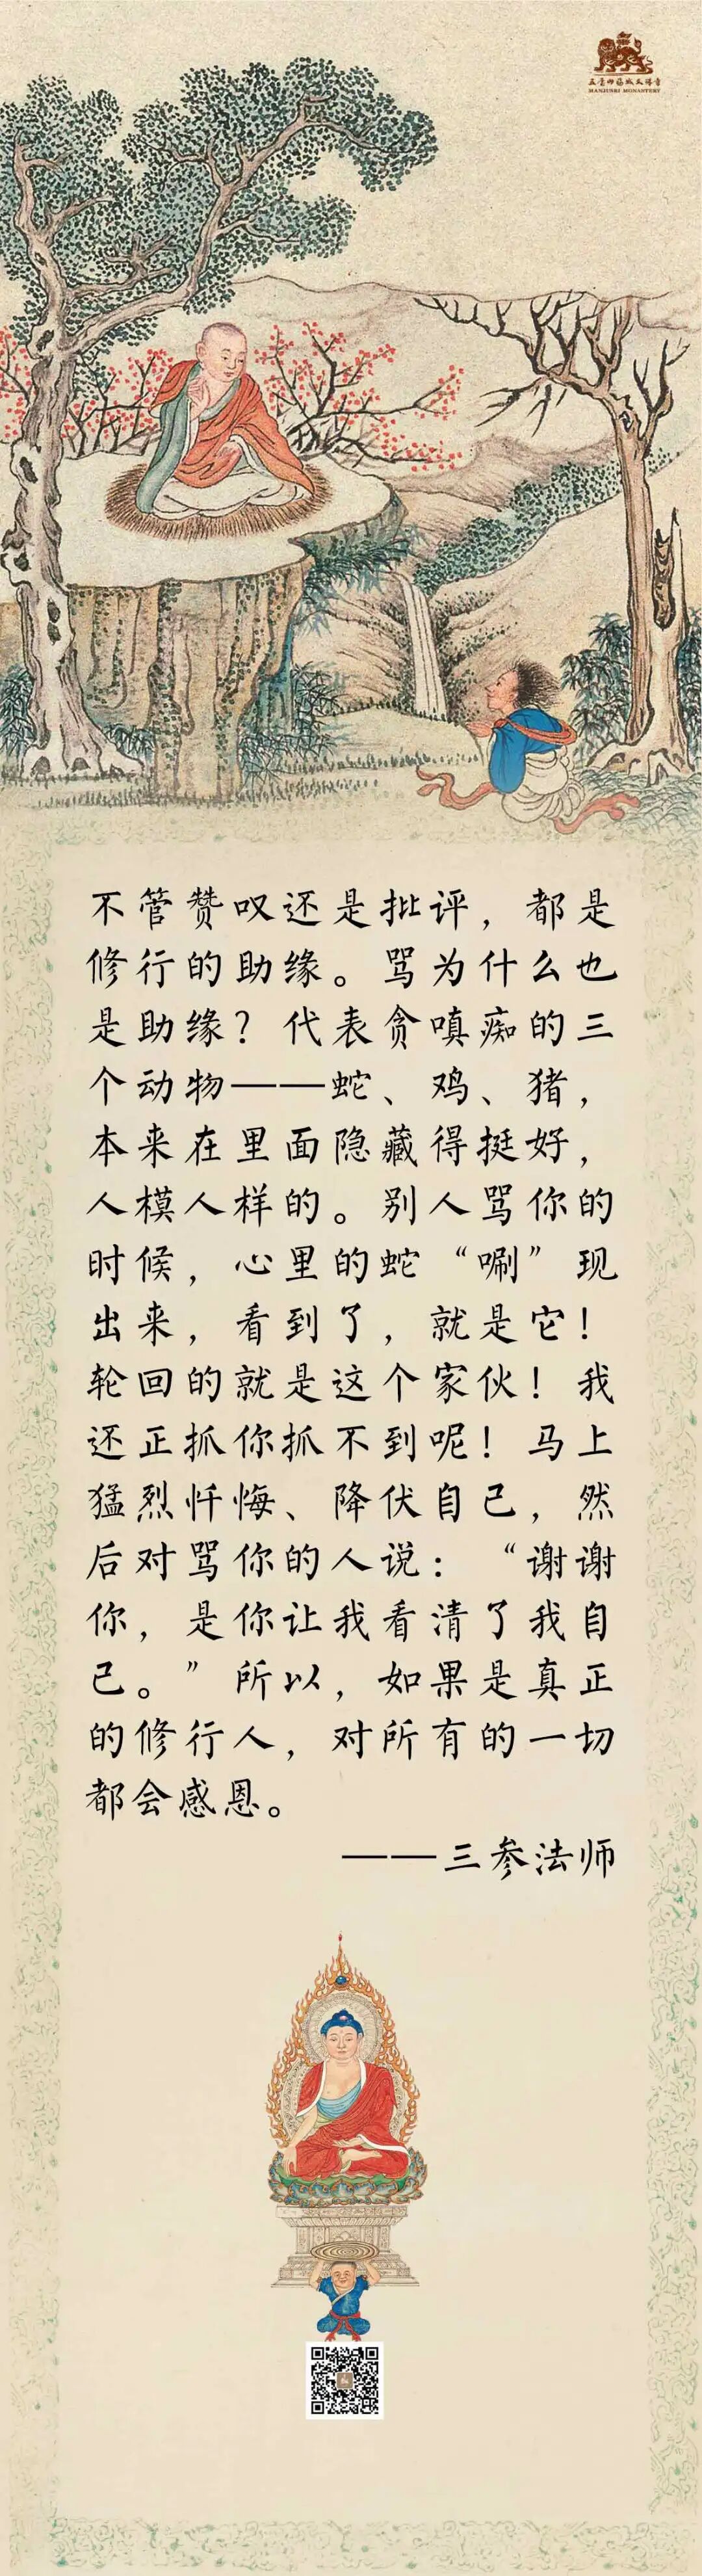 MANJUSRI MONASTERY
不管赞叹还是批评，都是
修行的助缘。骂为什么也
是助缘？代表贪嗔痴的三
个动物——蛇、鸡、猪，
本来在里面隐藏得挺好，
人模人样的。别人骂你的
时候，心里的蛇“唰”现
出来，看到了，就是它！
轮回的就是这个家伙！我
还正抓你抓不到呢！马上
猛烈忏悔、降伏自己，然
后对骂你的人说：“谢谢
你，是你让我看清了我自
己。”所以，如果是真正
的修行人，对所有的一切
都会感恩。
——三参法师